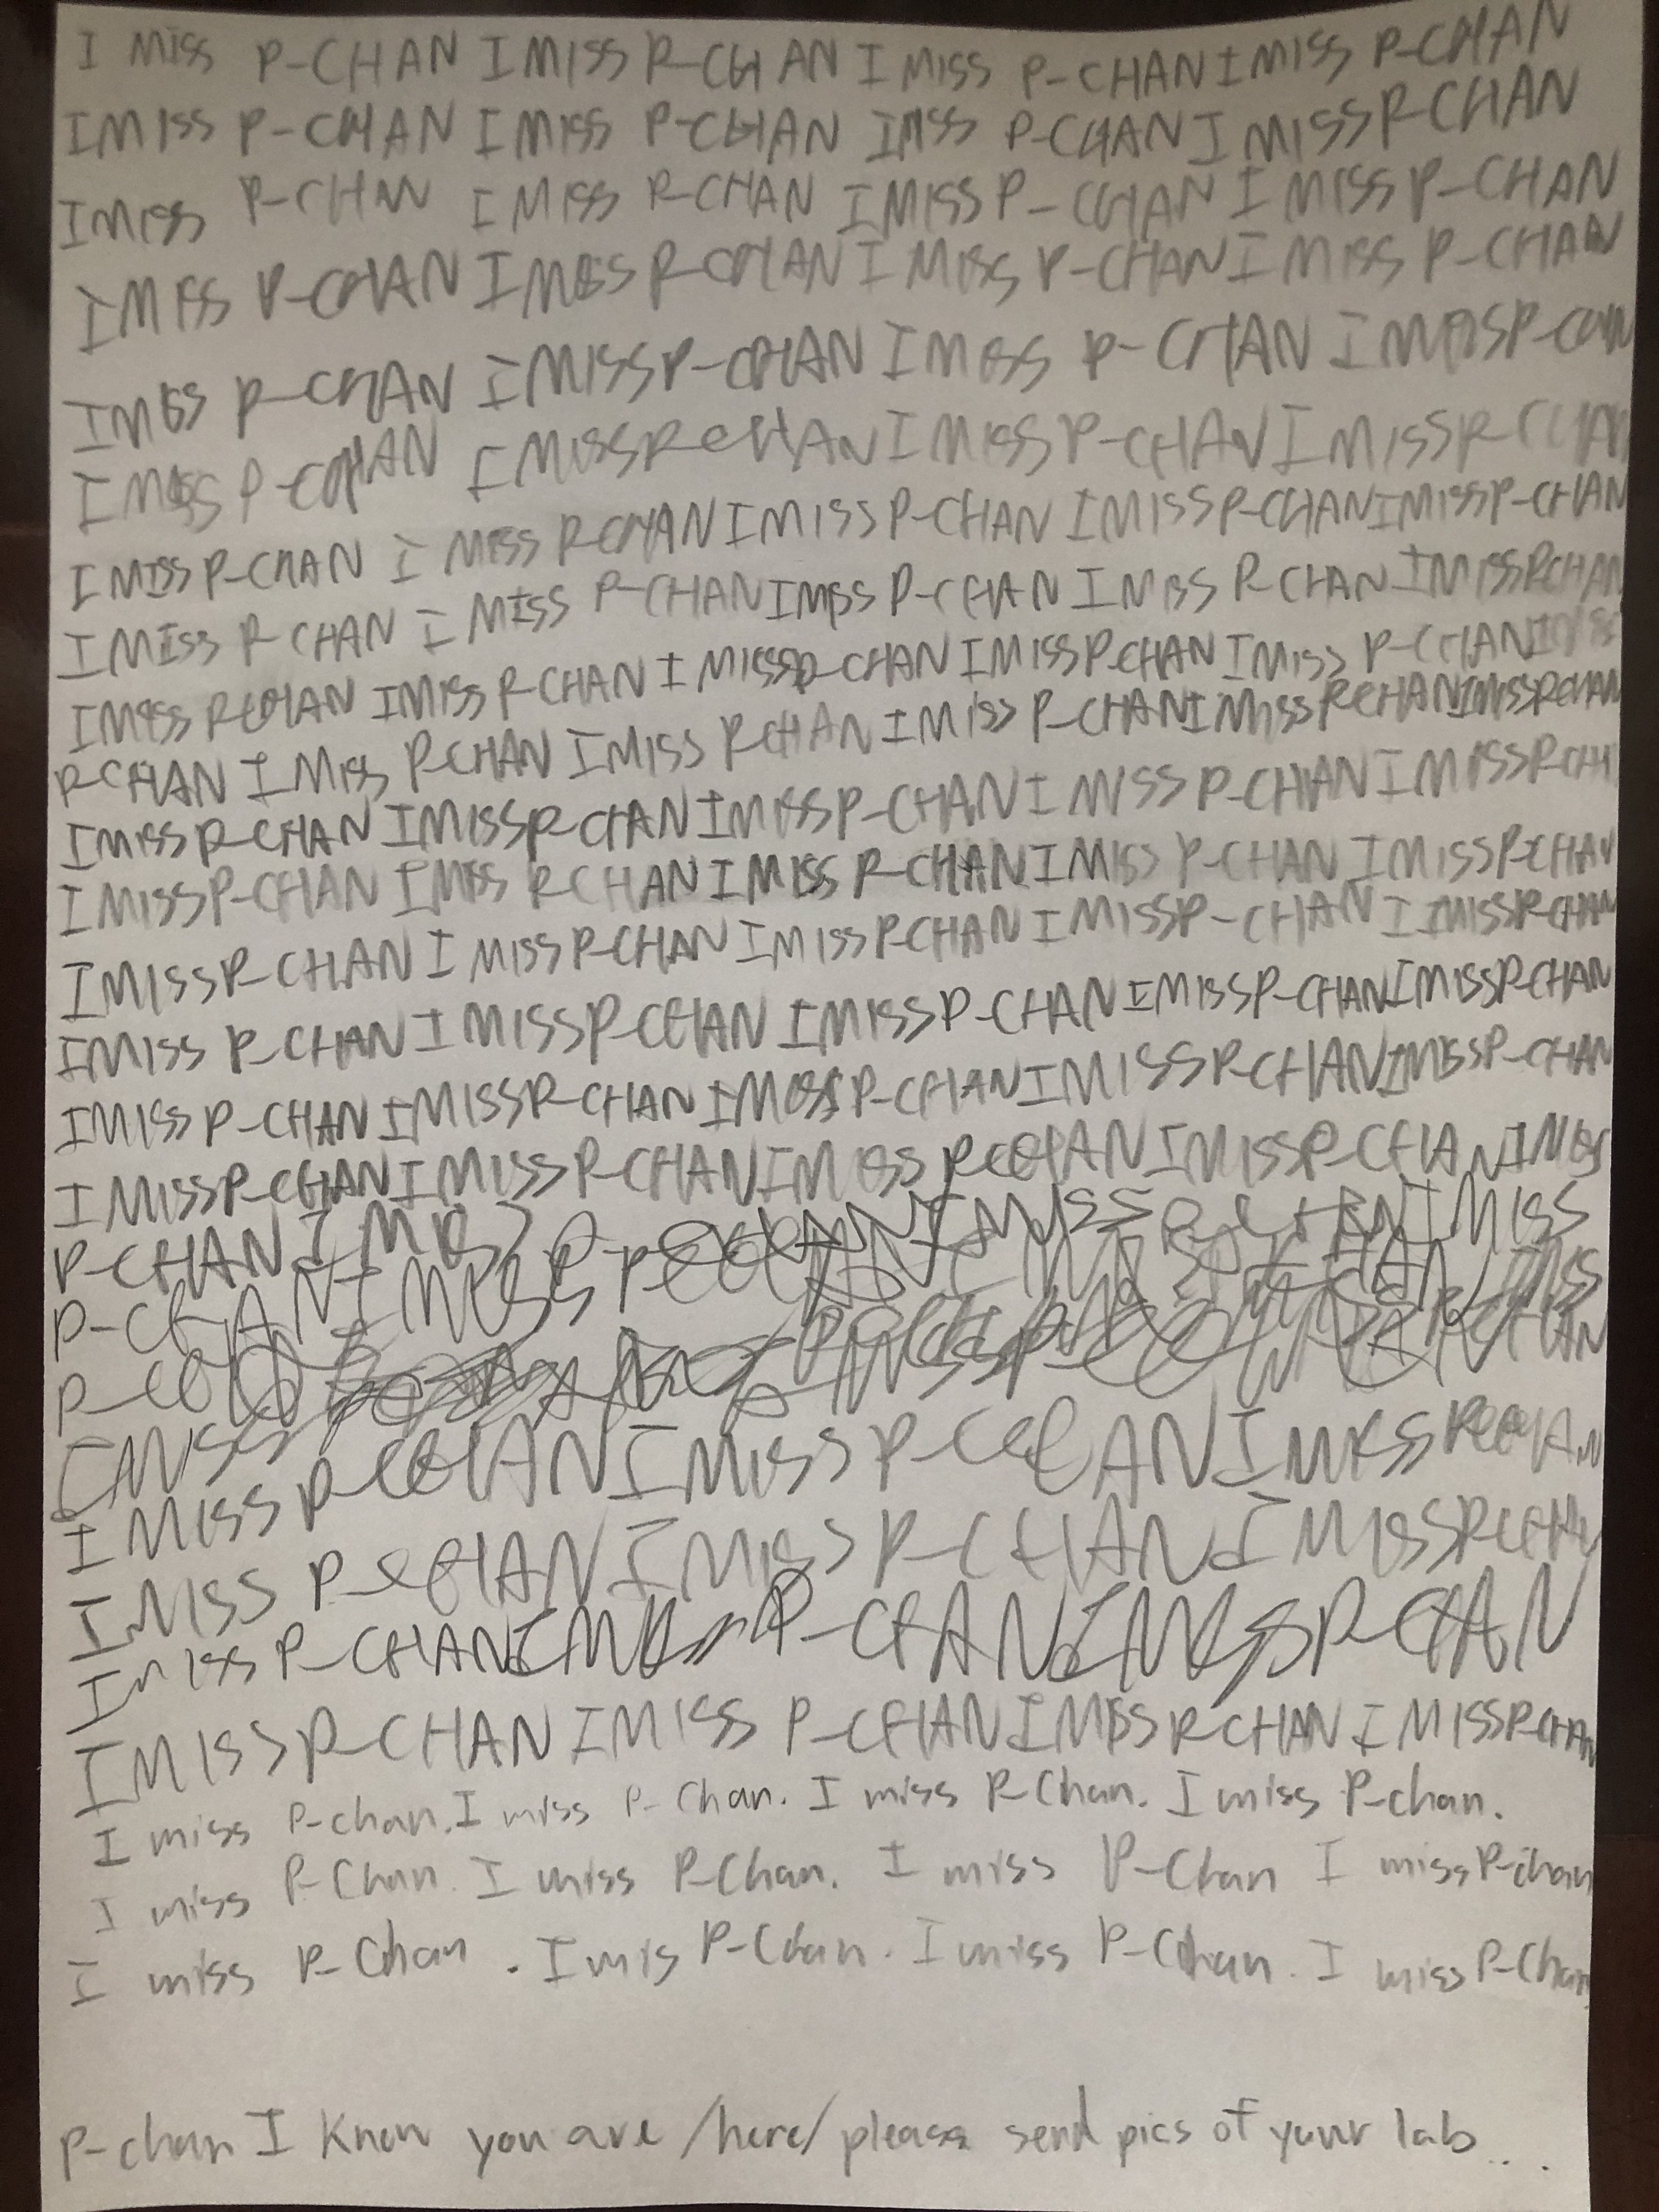 I MISS P-CHAN I MISS P-CHAN I MISS P-CHAN I MISS P-CHAN
I MISS P-CHAN I MISS P-CHAN I MISS P-CHAN I MISS P-CHAN
I MISS P-CHAN I MISS P-CHAN I MISS P-CHAN I MISS P-CHAN
I MISS P-CHAN I MISS P-CHAN I MISS P-CHAN I MISS P-CHAN
I MISS P-CHAN I MISS P-CHAN I MISS P-CHAN I MISS P-CHAN
I MISS P-CHAN I MISS P-CHAN I MISS P-CHAN I MISS P-CHAN
I MISS P-CHAN I MISS P-CHAN I MISS P-CHAN I MISS P-CHAN I MISS P-CHAN
I MISS P-CHAN I MISS P-CHAN I MISS P-CHAN I MISS P-CHAN I MISS P-CHAN
I MISS P-CHAN I MISS P-CHAN I MISS P-CHAN I MISS P-CHAN I MISS P-CHAN I MISS
P-CHAN I MISS P-CHAN I MISS P-CHAN I MISS P-CHAN I MISS P-CHAN I MISS P-CHAN
I MISS P-CHAN I MISS P-CHAN I MISS P-CHAN I MISS P-CHAN I MISS P-CHAN
I MISS P-CHAN I MISS P-CHAN I MISS P-CHAN I MISS P-CHAN I MISS P-CHAN
I MISS P-CHAN I MISS P-CHAN I MISS P-CHAN I MISS P-CHAN I IMISS P-CHAN
I MISS P-CHAN I MISS P-CHAN I MISS P-CHAN I MISS P-CHAN I MISS P-CHAN
I MISS P-CHAN I MISS P-CHAN I MISS P-CHAN I MISS P-CHAN I MISS P-CHAN
I MISS P-CHAN I MISS P-CHAN I MISS P-CHAN I MISS P-CHAN I MISS
P-CHAN I MISS P-CHAN I MISS P-CHAN I MISS
P-CHAN I MISS P-CHAN I MISS
P-CHAN
I MISS
I MISS P-CHAN I MISS P-CHAN I MISS P-CHAN
I MISS P-CHAN I MISS P-CHAN I MISS P-CHAN
I MISS P-CHAN I MISS P-CHAN I MISS P-CHAN
I MISS P-CHAN I MISS P-CHAN I MISS P-CHAN I MISS P-CHAN
I miss P-chan. I miss P-Chan. I miss P-Chan. I miss P-chan.
I miss P-Chan. I miss P-Chan. I miss P-Chan I miss P-chan
I miss P-Chan. I mis P-Chan. I miss P-Chan. I miss P-Chan
P-chan I know you are /here/ please send pics of your lab...